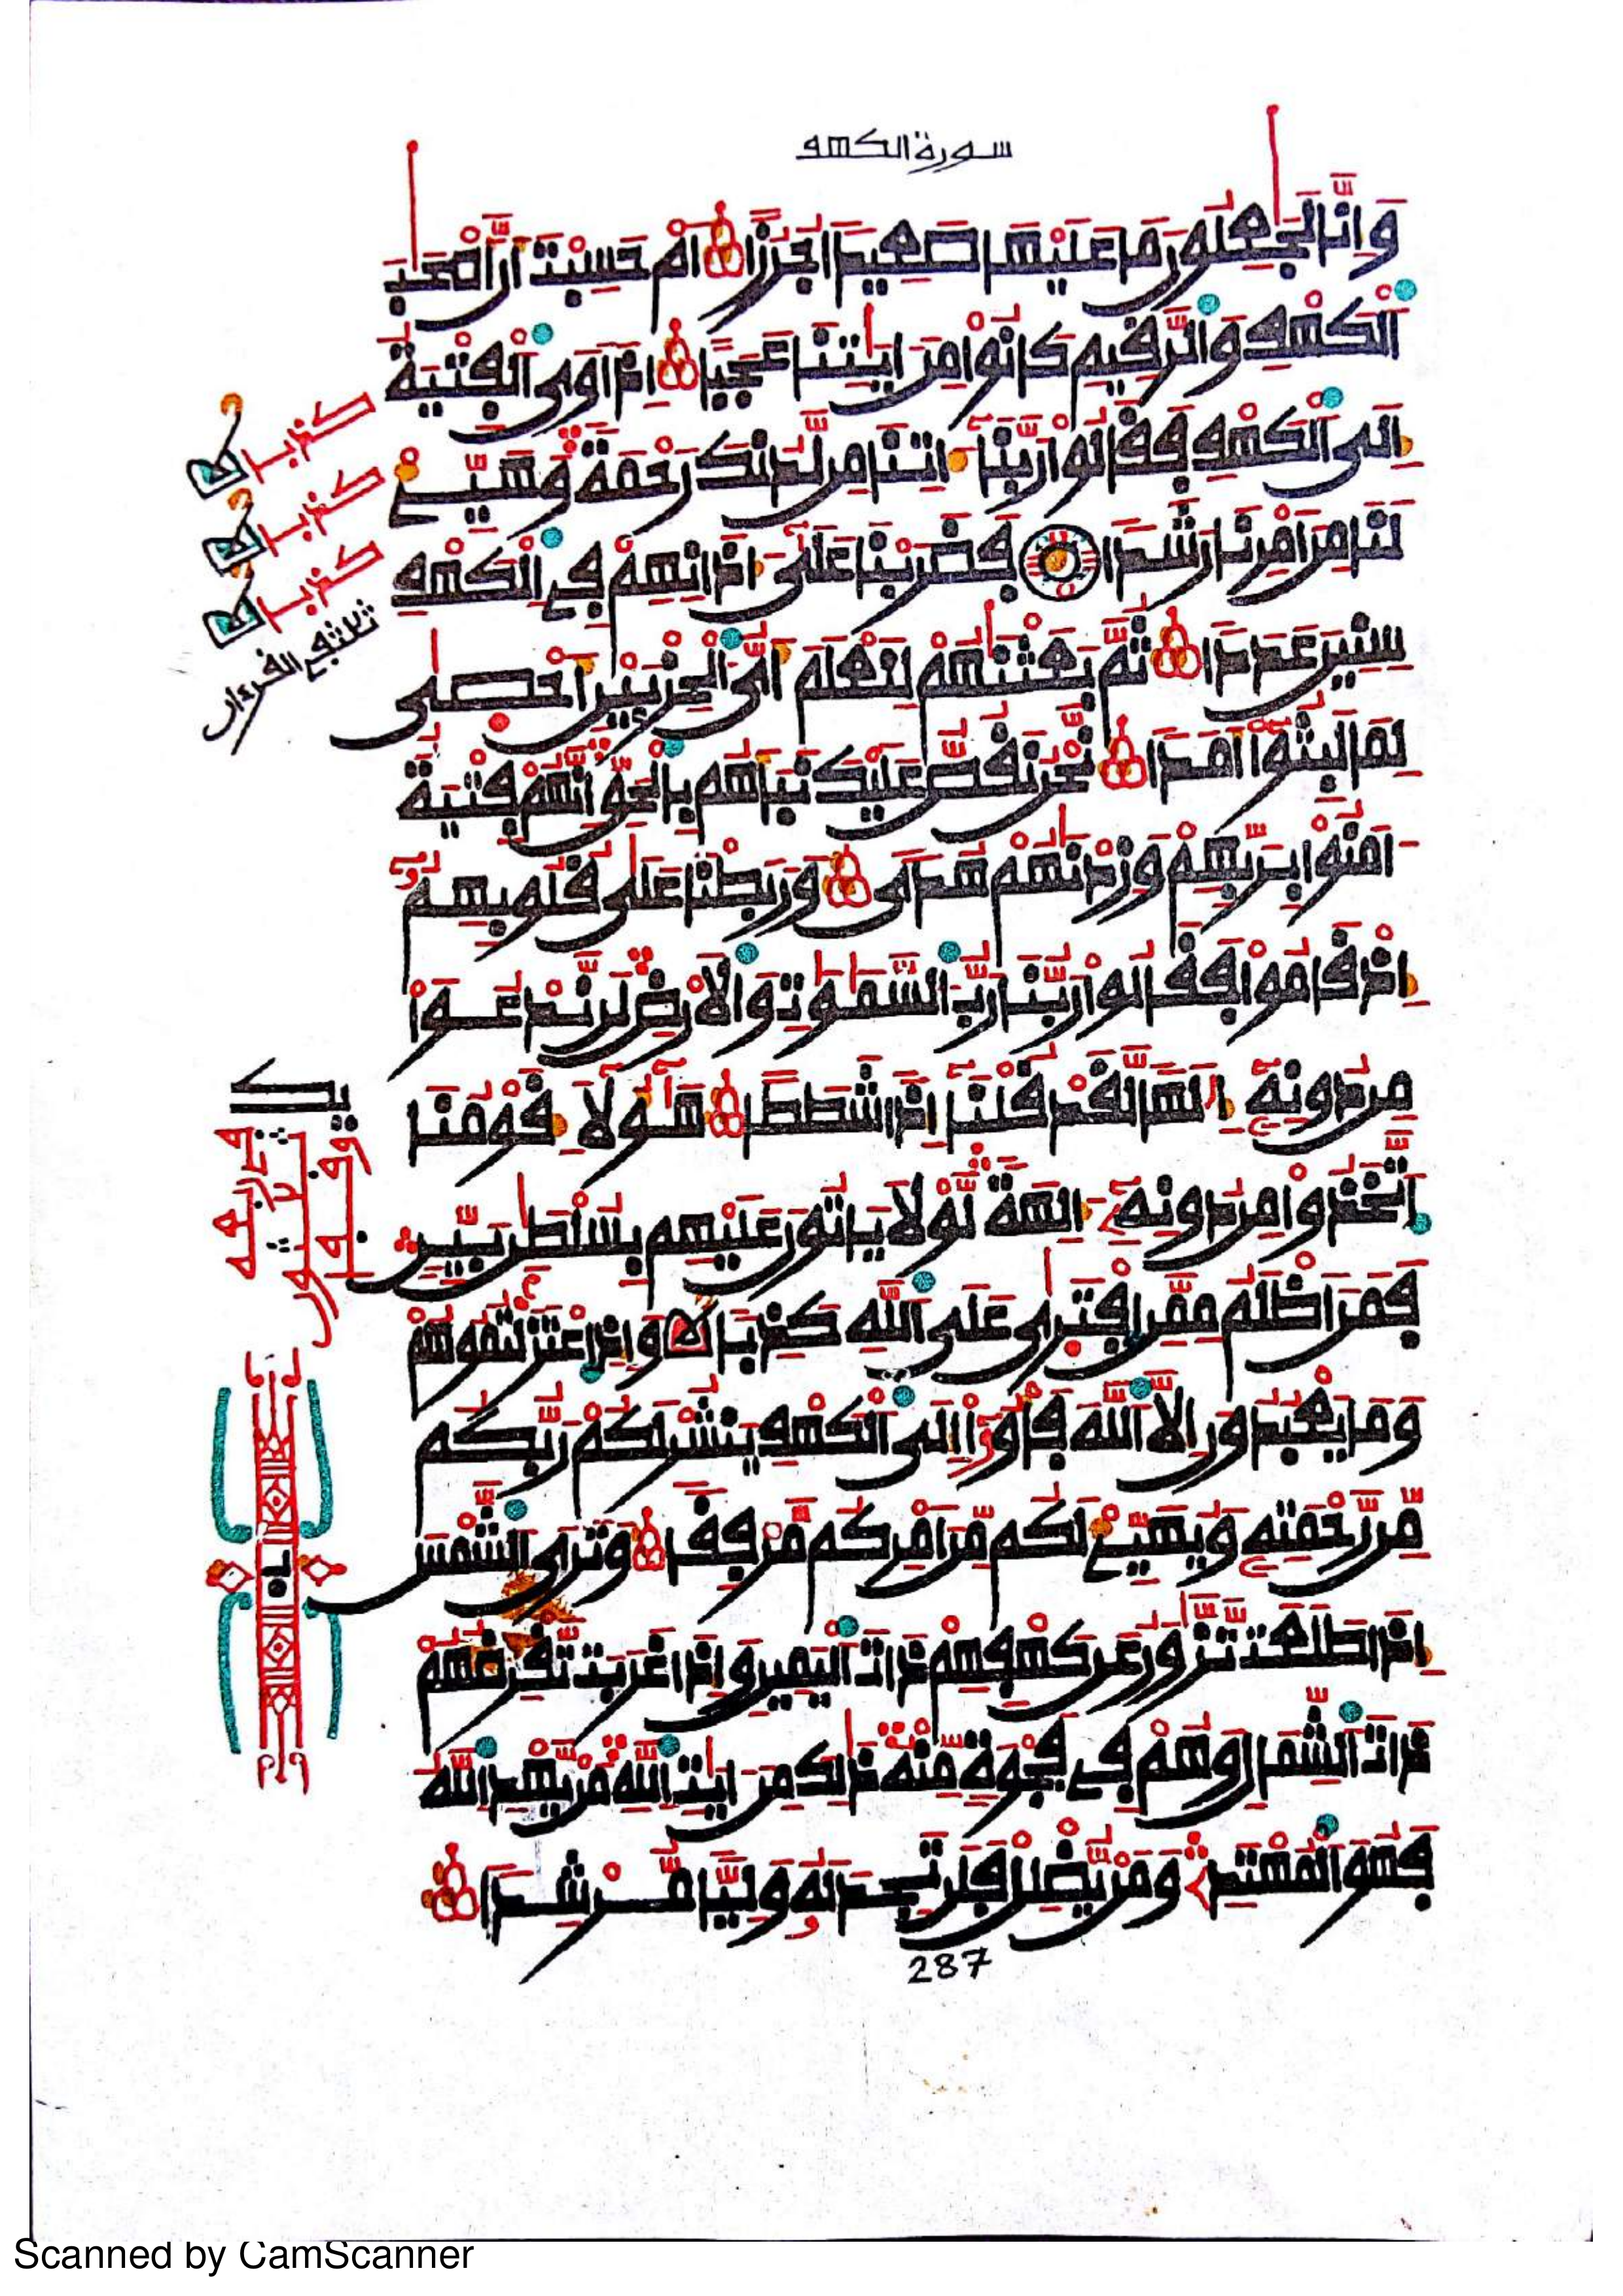 سورة الكهف
وَإِنَّا لَجَٰعِلُونَ مَا عَلَيْهَا صَعِيدًا جُرُزًا أَمْ حَسِبْتَ أَنَّ أَصْحَٰبَ
اَلْكَهْفِ وَالرَّقِيمِ كَانُوا مِنَ ايَٰتِنَا عَجَبًا إِذَ اوَى اَلْفِتْيَةُ
إِلَى اَلْكَهْفِ فَقَالُوا رَبَّنَا ءَاتِنَا مِن لَّدُنكَ رَحْمَةً وَهَيِّئْ
لَنَا مِنَ امْرِنَا رَشَدًا فَضَرَبْنَا عَلَىٰ ءَاذَانِهِمْ فِي اِلْكَهْفِ
سِنِينَ عَدَدًا ثُمَّ بَعَثْنَٰهُمْ لِنَعْلَمَ أَيُّ اَلْحِزْبَيْنِ أَحْصَىٰ
لِمَا لَبِثُوا أَمَدًا نَّحْنُ نَقُصُّ عَلَيْكَ نَبَأَهُم بِالْحَقِّ إِنَّهُمْ فِتْيَةٌ
ءَامَنُوا بِرَبِّهِمْ وَزِدْنَٰهُمْ هُدًى وَرَبَطْنَا عَلَىٰ قُلُوبِهِمُ
إِذْ قَامُوا فَقَالُوا رَبُّنَا رَبُّ السَّمَٰوَٰتِ وَالَارْضِ لَن نَّدْعُوَا
مِن دُونِهِ إِلَٰهًا لَّقَدْ قُلْنَا إِذًا شَطَطًا هَٰؤُلَاءِ قَوْمُنَا
اَتَّخَذُوا مِن دُونِهِ ءَالِهَةً لَّوْلَا يَاتُونَ عَلَيْهِم بِسُلْطَٰنٍ بَيِّنٍ
فَمَنَ اظْلَمُ مِمَّنِ اِفْتَرَىٰ عَلَى اَللَّهِ كَذِبًا وَإِذِ اِعْتَزَلْتُمُوهُمْ
وَمَا يَعْبُدُونَ إِلَّا اَللَّهَ فَأْوُۥا إِلَى اَلْكَهْفِ يَنشُرْ لَكُمْ رَبُّكُم
مِّن رَّحْمَتِهِ وَيُهَيِّئْ لَكُم مِّنَ امْرِكُم مَّرْفِقًا وَتَرَى اَلشَّمْسَ
إِذَا طَلَعَت تَّزَّٰوَرُ عَن كَهْفِهِمْ ذَاتَ اَلْيَمِينِ وَإِذَا غَرَبَت تَّقْرِضُهُمْ
ذَاتَ اَلشِّمَالِ وَهُمْ فِي فَجْوَةٍ مِّنْهُ ذَٰلِكَ مِنَ ايَٰتِ اِللَّهِ مَنْ يَّهْدِ اِللَّهُ
فَهُوَ اَلْمُهْتَدِ وَمَنْ يُّضْلِلْ فَلَن تَجِدَ لَهُ وَلِيًّا مُّرْشِدًا
287
Scanned by CamScanner